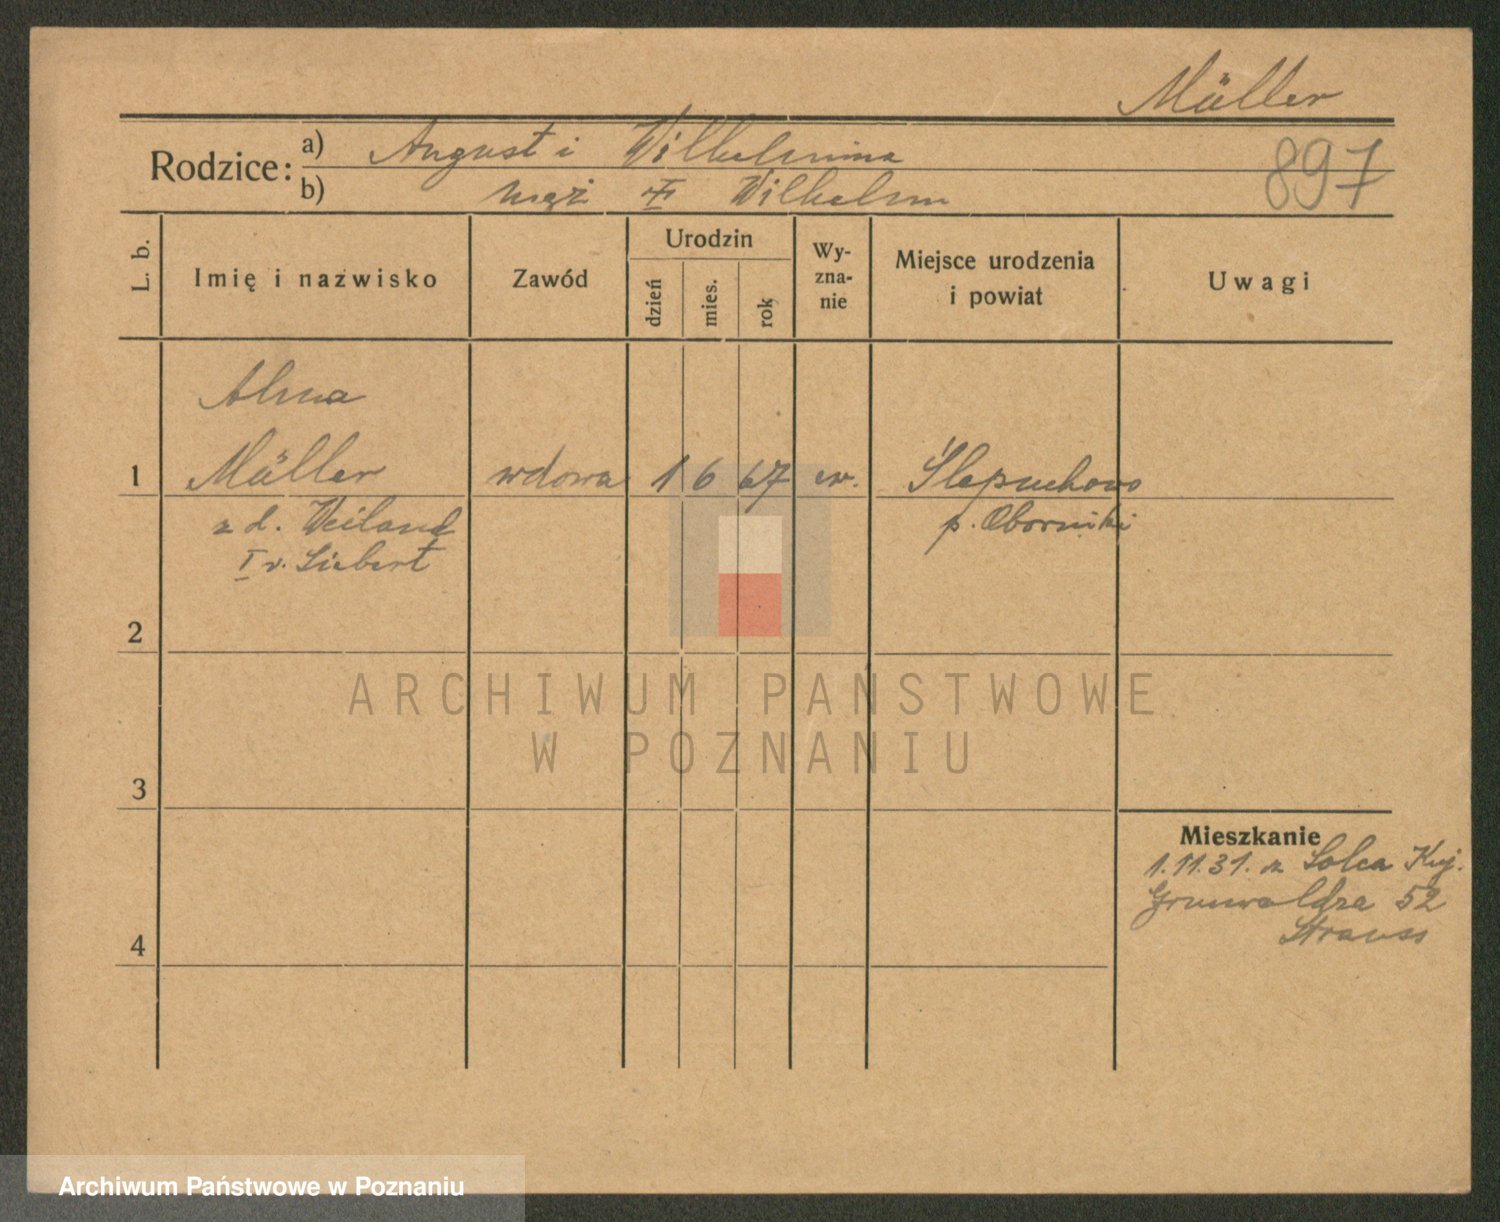 Müller
Rodzice:
a) August i Wilhelmina
b) mąż II Wilhelm
897
L. b.
Imię i nazwisko
Zawód
Urodzin
dzień
mies.
rok
Wy-
zna-
nie
Miejsce urodzenia
i powiat
Uwagi
Alma
1 Müller wdowa 1 6 67 ew. Ślepuchowo
z d. Weiland p. Oborniki
I v. Liebert
2
ARCHIWUM PAŃSTWOWE
W POZNANIU
3
Mieszkanie
1.11.31. z Solca Kuj.
Grunwaldza 52
Strauss
4
Archiwum Państwowe w Poznaniu